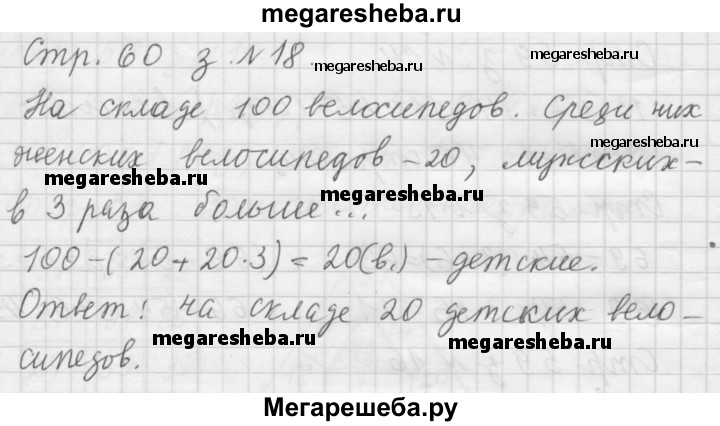 megaresheba.ru
Стр. 60 з. №18.
megaresheba.ru
megaresheba.ru
На складе 100 велосипедов. Среди них
megaresheba.ru
женских велосипедов – 20, мужских –
megaresheba.ru
megaresheba.ru
в 3 раза больше...
100 – (20 + 20 · 3) = 20 (в.) – детские.
Ответ: на складе 20 детских вело–
megaresheba.ru
megaresheba.ru
сипедов.
Мегарешеба.ру